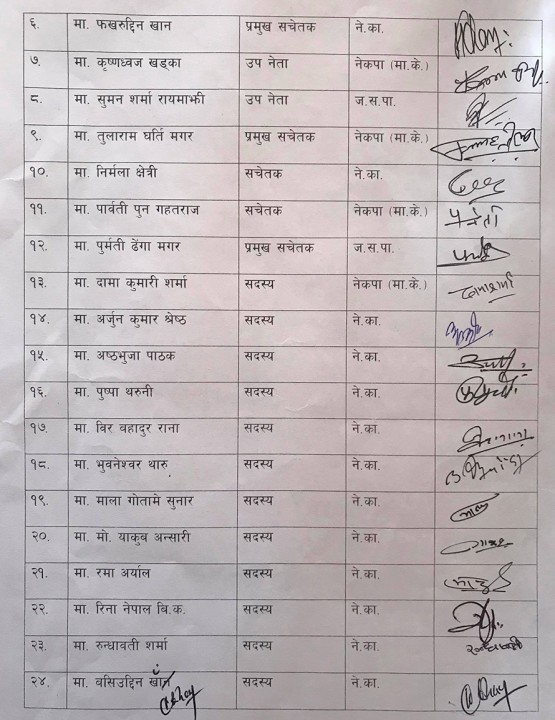 ६. मा. फखरुद्दिन खान प्रमुख सचेतक ने.का.
७. मा. कृष्णध्वज खड्का उप नेता नेकपा (मा.के.)
८. मा. सुमन शर्मा रायमाझी उप नेता ज.स.पा.
९. मा. तुलाराम घर्ति मगर प्रमुख सचेतक नेकपा (मा.के.)
१०. मा. निर्मला क्षेत्री सचेतक ने.का.
११. मा. पार्वती पुन गहतराज सचेतक नेकपा (मा.के.)
१२. मा. पुर्मती ढेंगा मगर प्रमुख सचेतक ज.स.पा.
१३. मा. दामा कुमारी शर्मा सदस्य नेकपा (मा.के.)
१४. मा. अर्जुन कुमार श्रेष्ठ सदस्य ने.का.
१५. मा. अष्ठभुजा पाठक सदस्य ने.का.
१६. मा. पुष्पा थरुनी सदस्य ने.का.
१७. मा. विर वहादुर राना सदस्य ने.का.
१८. मा. भुवनेश्वर थारु सदस्य ने.का.
१९. मा. माला गोतामे सुनार सदस्य ने.का.
२०. मा. मो. याकुव अन्सारी सदस्य ने.का.
२१. मा. रमा अर्याल सदस्य ने.का.
२२. मा. रिना नेपाल वि.क. सदस्य ने.का.
२३. मा. रुन्धावती शर्मा सदस्य ने.का.
२४. मा. वसिउद्दिन खाँन सदस्य ने.का.